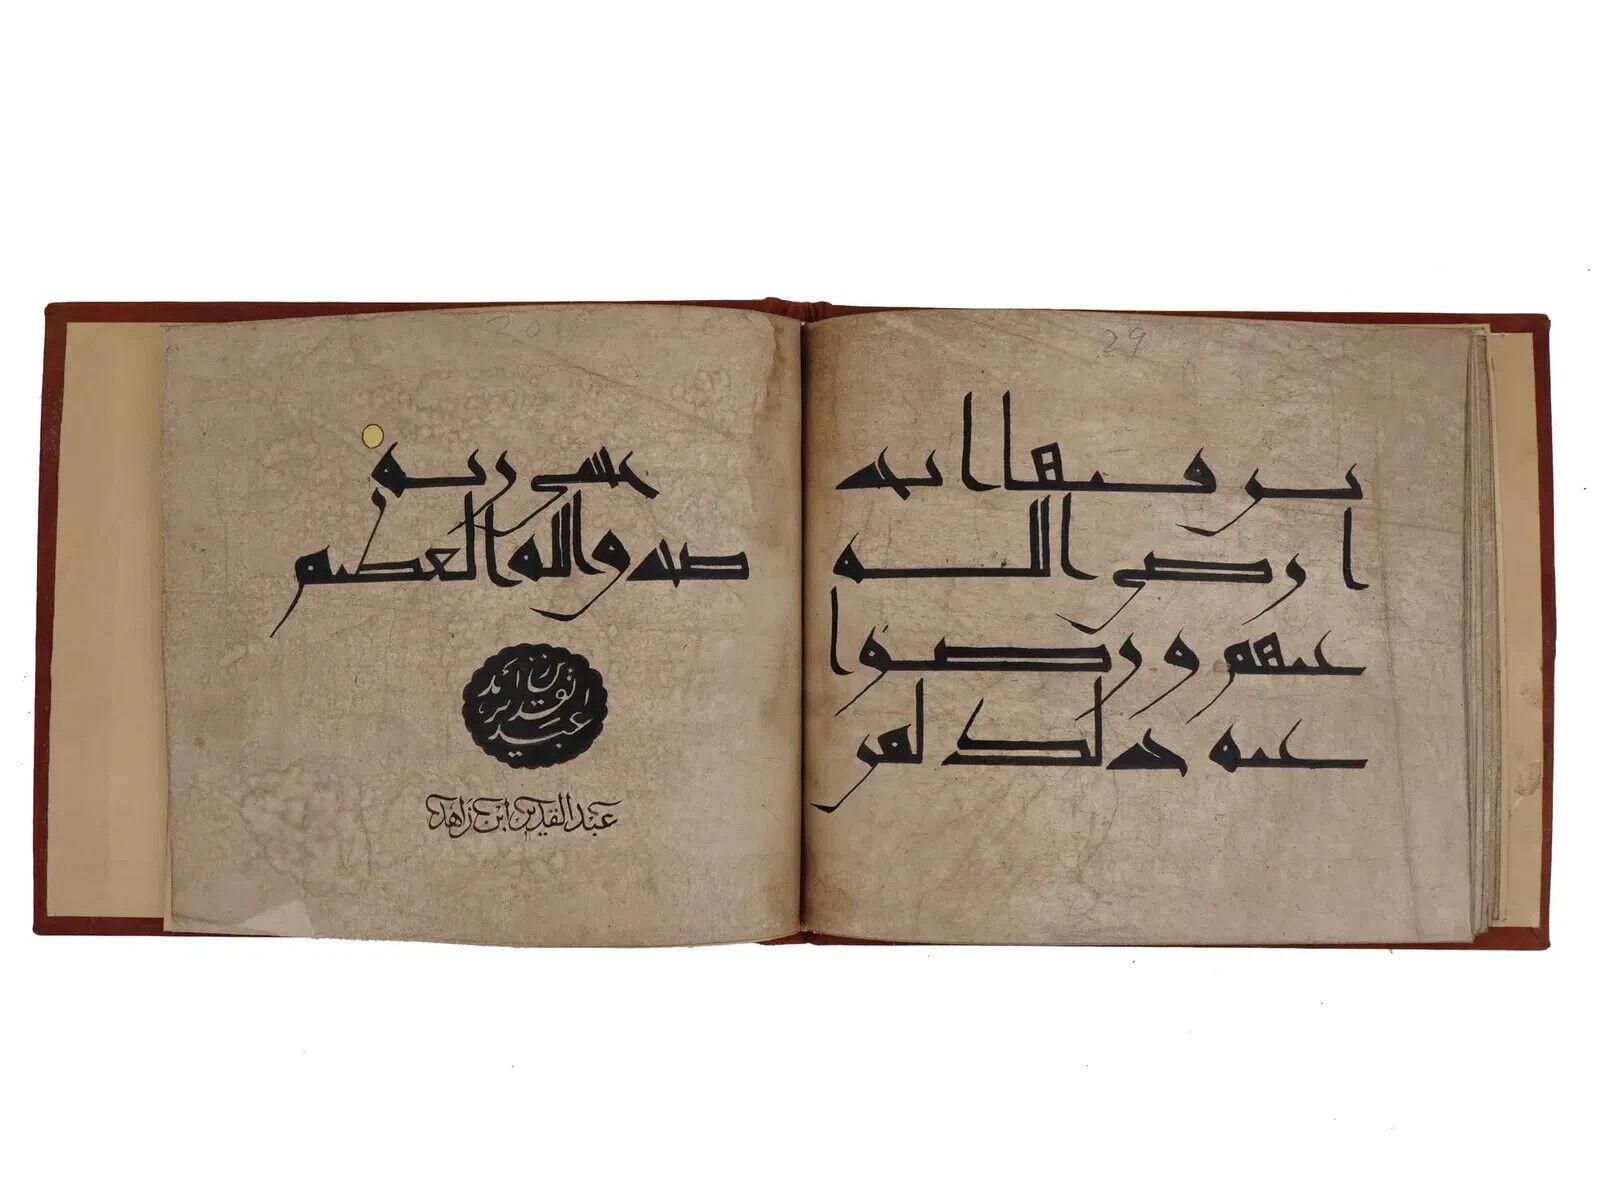 29
ين فيها ابد
ا رضي الله
عنهم ورضوا
عنه ذلك لمن
خشي ربه
صدق الله العظيم
عبد القدير بن زاهد
عبدالقدير ابن زاهد